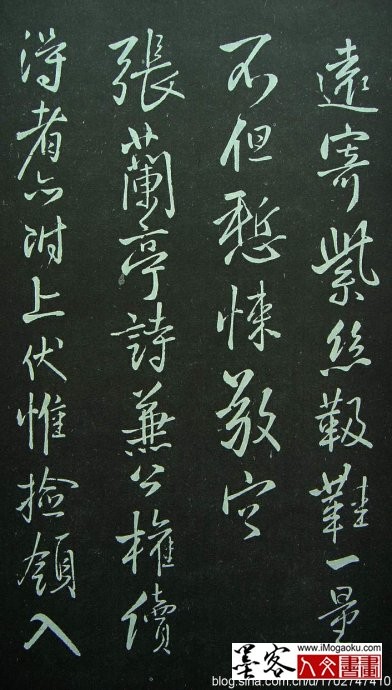 遠寄紫絲靸鞋一量
不但慙悚敬空
張蘭亭詩兼公權續
得者亦附上伏惟撿領入
墨客
www.iMogaoku.com
人文書畫
blog.sina.com.cn/u/1702747410